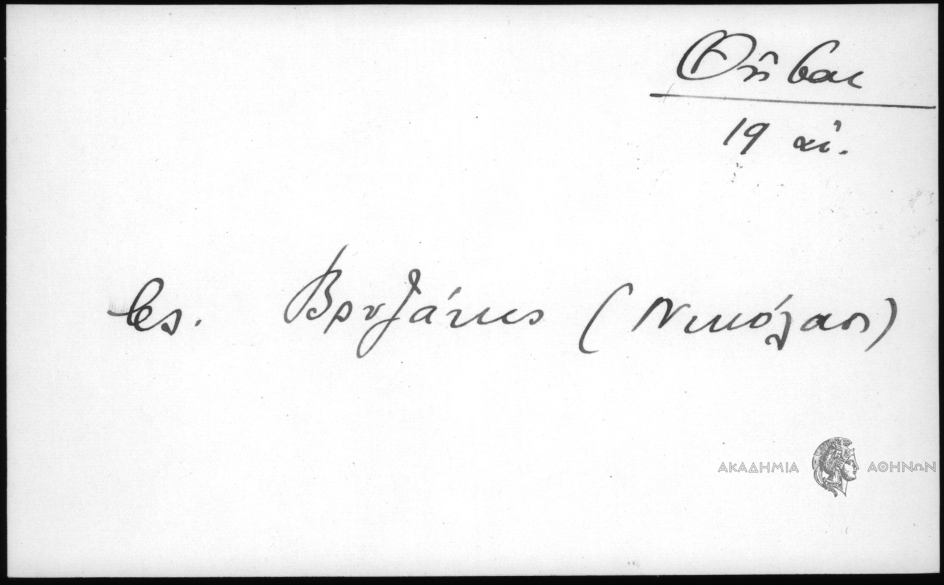 Θῆβαι
19 αἰ.
βλ. Βρυζάκης (Νικόλαος)
ΑΚΑΔΗΜΙΑ ΑΘΗΝΩΝ